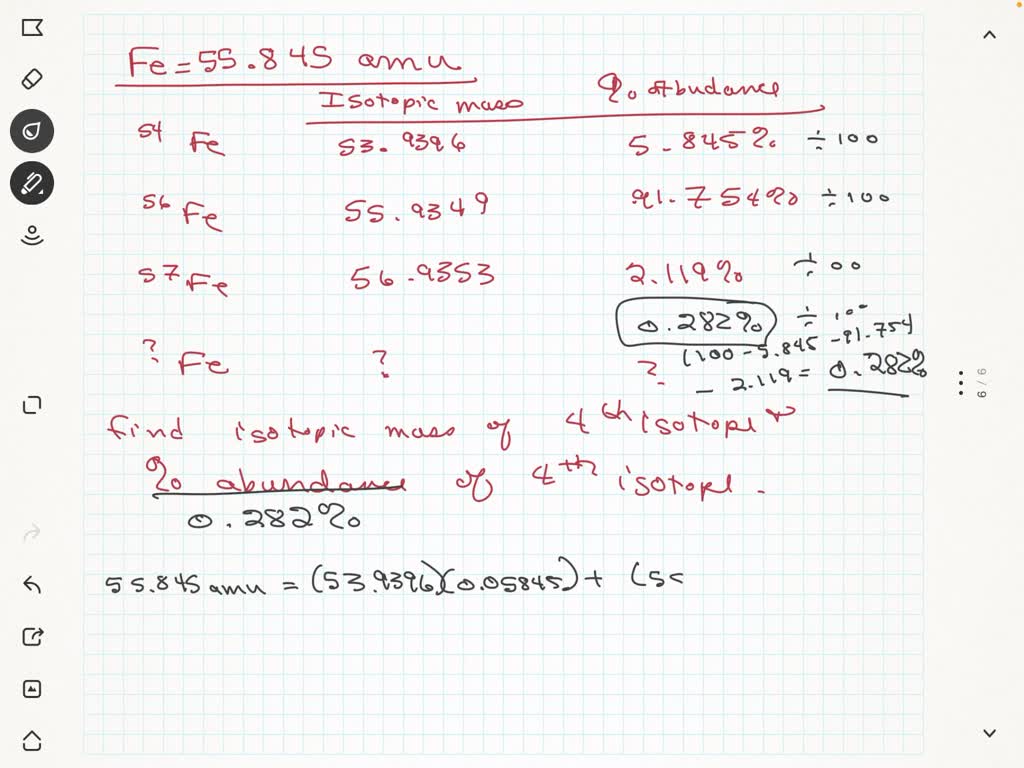 Fe = 55.845 amu
Isotopic mass % Abudance
54 Fe 53.9396 5.845% ÷ 100
56 Fe 55.9349 91.754% ÷ 100
57 Fe 56.9353 2.119% ÷ 00
0.282% ÷ 100
? Fe ? ? (100 - 5.845 - 91.754
- 2.119 = 0.282%
find isotopic mass of 4th isotope
% abundance of 4th isotope.
0.282%
55.845 amu = (53.9396)(0.05845) + (55
9 / 9